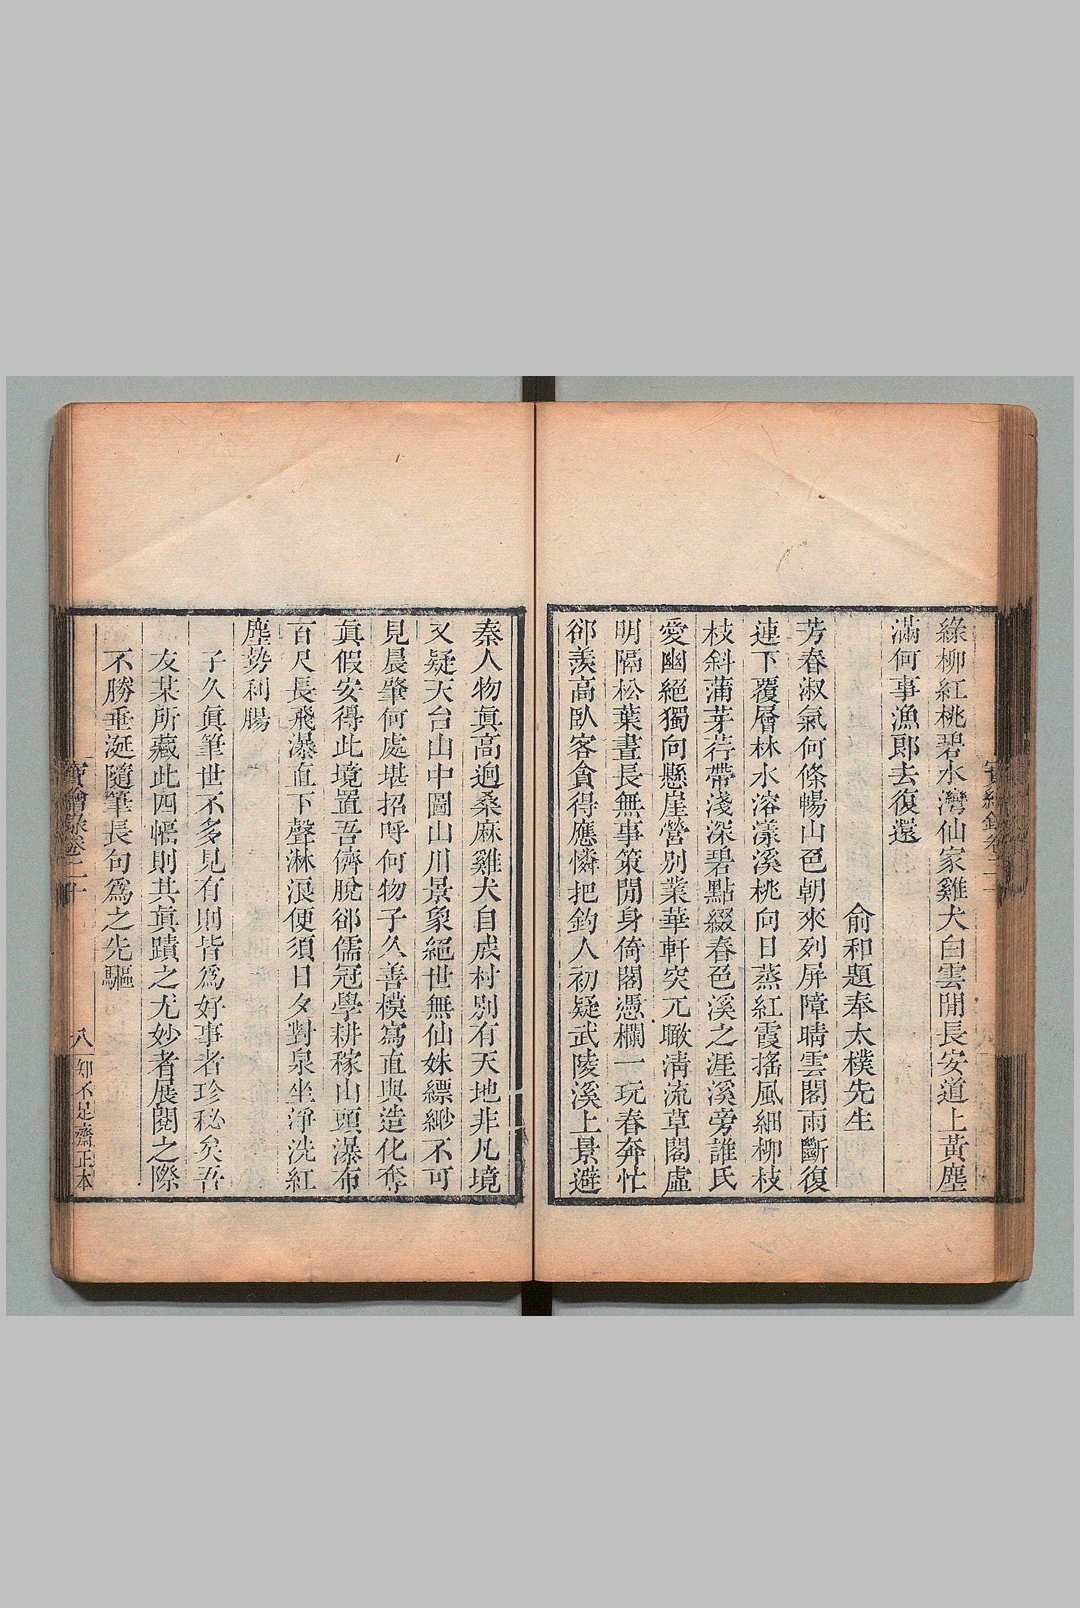 綠柳紅桃碧水灣仙家雞犬白雲閒長安道上黃塵
滿何事漁郎去復還
俞和題奉太樸先生
芳春淑氣何條暢山色朝來列屏障晴雲閣雨斷復
連下覆層林水溶漾溪桃向日蒸紅霞搖風細柳枝
枝斜蒲芽荇帶淺深碧點綴春色溪之涯溪旁誰氏
愛幽絕獨向懸崖營別業華軒突兀瞰清流草閣虛
明隔松葉晝長無事策閒身倚閣憑欄一玩春奔忙
郤羨高臥客貪得應憐把釣人初疑武陵溪上景避
秦人物眞高逈桑麻雞犬自成村別有天地非凡境
又疑天台山中圖山川景象絕世無仙姝縹緲不可
見晨肇何處堪招呼何物子久善模寫直與造化奪
眞假安得此境置吾儕脫郤儒冠學耕稼山頭瀑布
百尺長飛瀑直下聲淋浪便須日夕對泉坐淨洗紅
塵勢利腸
子久眞筆世不多見有則皆爲好事者珍秘矣吾
友某所藏此四幅則其眞蹟之尤妙者展閱之際
不勝垂涎隨筆長句爲之先驅
寶繪錄卷二十
八
知不足齋正本